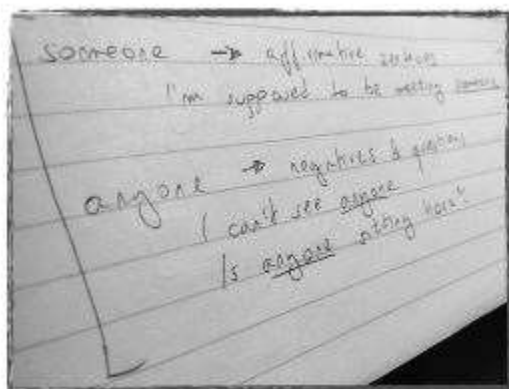 someone → affirmative sentences
I'm supposed to be meeting someone
anyone → negatives & questions
I can't see anyone
Is anyone sitting here?